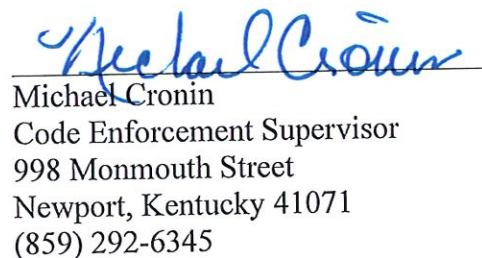 Michael Cronin
Michael Cronin
Code Enforcement Supervisor
998 Monmouth Street
Newport, Kentucky 41071
(859) 292-6345